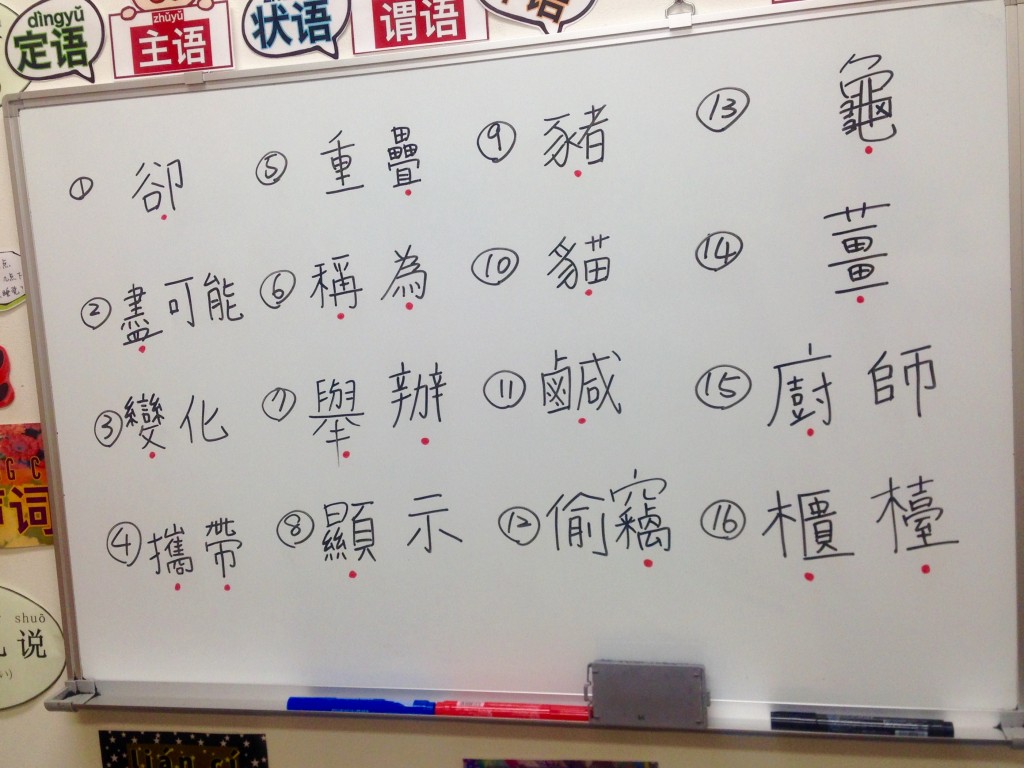 dìngyǔ
定语
zhǔyǔ
主语
状语
谓语
语
① 卻
② 盡可能
③ 變化
④ 攜帶
⑤ 重疊
⑥ 稱為
⑦ 舉辦
⑧ 顯示
⑨ 豬
⑩ 貓
⑪ 鹹
⑫ 偷竊
⑬ 龜
⑭ 薑
⑮ 廚師
⑯ 櫃檯
G C
词
shuō
说
lián cí